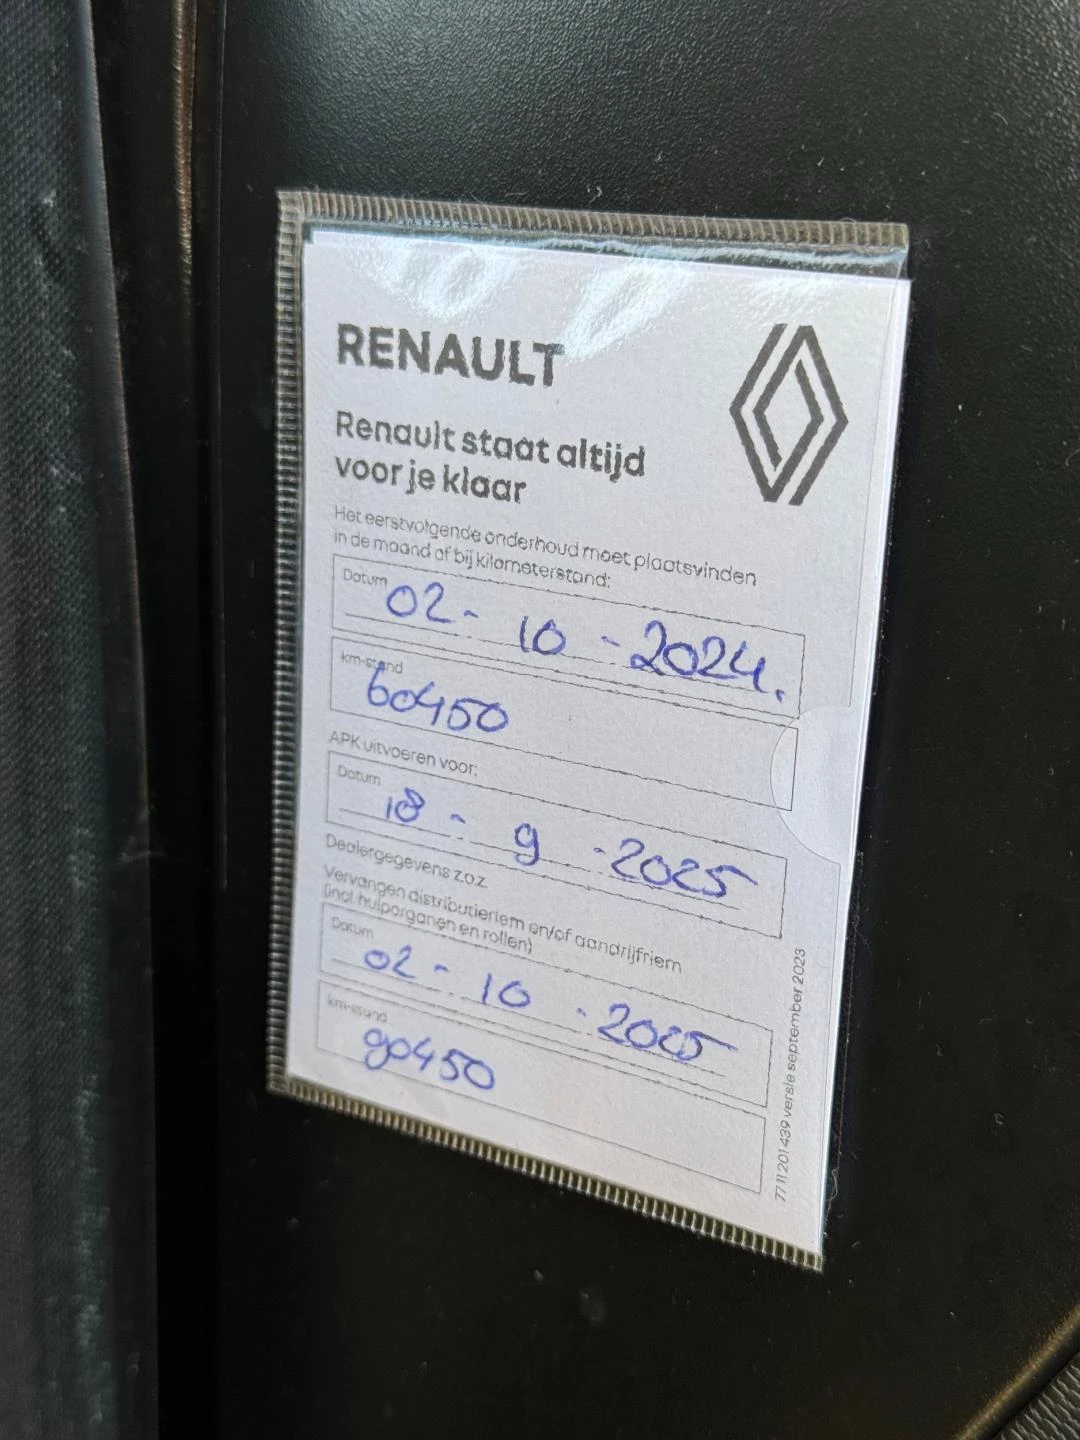 RENAULT
Renault staat altijd
voor je klaar
Het eerstvolgende onderhoud moet plaatsvinden
in de maand of bij kilometerstand:
Datum
02 - 10 - 2024.
km-stand
60450
APK uitvoeren voor:
Datum
18 - 9 - 2025
Dealergegevens z.o.z.
Vervangen distributieriem en/of aandrijfriem
(incl. hulporganen en rollen)
Datum
02 - 10 - 2025
km-stand
90450
77 11 201 439 versie september 2023